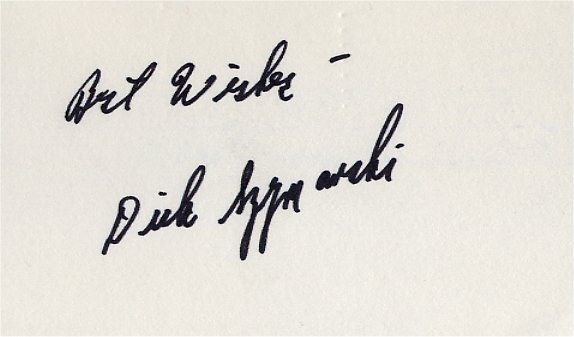 Best Wishes -
Dick Szymanski